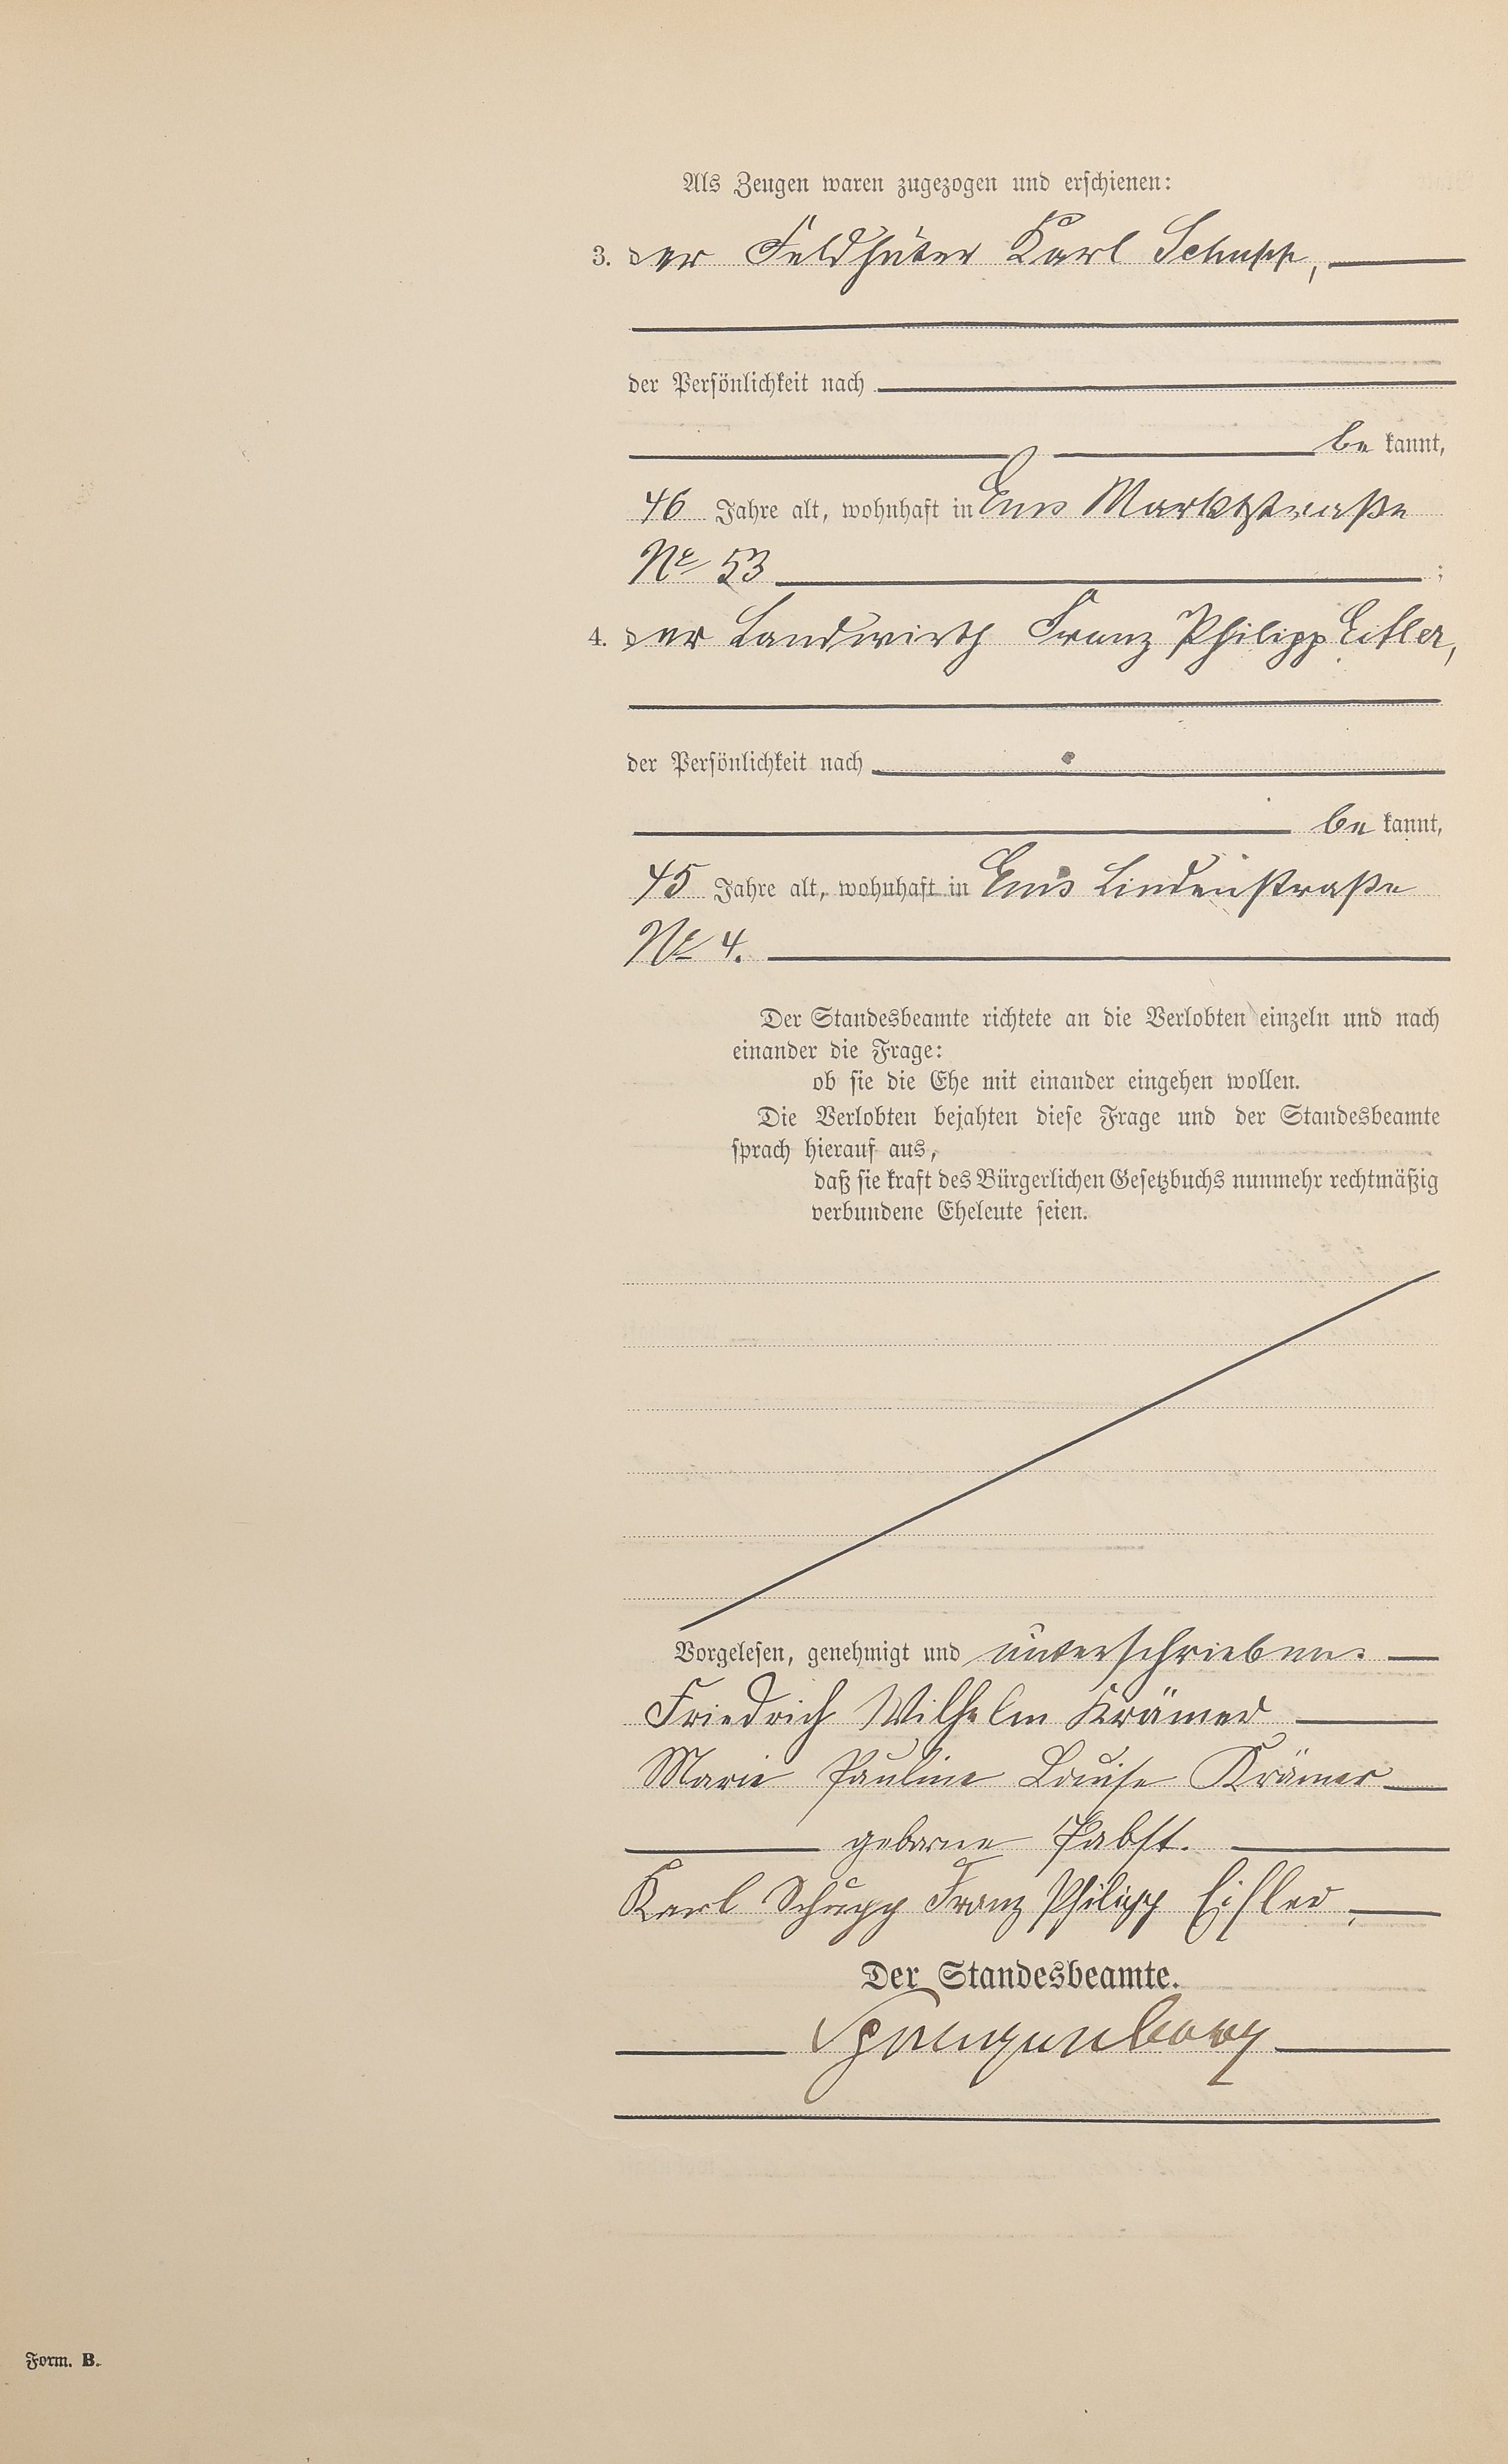 Als Zeugen waren zugezogen und erschienen:
3. der Feldhüter Karl Schupp,
der Persönlichkeit nach
be kannt,
46 Jahre alt, wohnhaft in Ems Marktstraße
No 53 ;
4. der Landwirth Franz Philipp Eifler,
der Persönlichkeit nach
be kannt,
45 Jahre alt, wohnhaft in Ems Lindenstraße
No 4.
Der Standesbeamte richtete an die Verlobten einzeln und nach
einander die Frage:
ob sie die Ehe mit einander eingehen wollen.
Die Verlobten bejahten diese Frage und der Standesbeamte
sprach hierauf aus,
daß sie kraft des Bürgerlichen Gesetzbuchs nunmehr rechtmäßig
verbundene Eheleute seien.
Vorgelesen, genehmigt und unterschrieben:
Friedrich Wilhelm Krämer
Marie Pauline Louise Krämer
geborne Pabst.
Karl Schupp Franz Philipp Eifler,
Der Standesbeamte.
Spangenberg
Form. B.